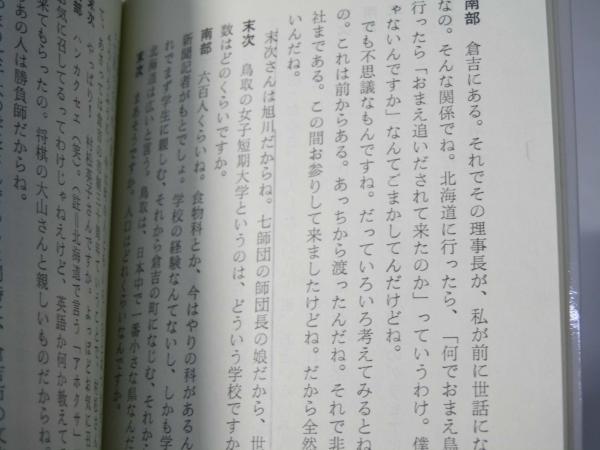 南部　倉吉にある。それでその理事長が、私が前に世話にな
なの。そんな関係でね。北海道に行ったら、「何でおまえ鳥
行ったら「おまえ追いだされて来たのか」っていうわけ。僕
ゃないんですか」なんてごまかしてんだけどね。
でも不思議なもんですね。だっていろいろ考えてみるとね
の。これは前からある。あっちから渡ったんだね。それで非
社まである。この間お参りして来ましたけどね。だから全然
いんだね。
末次さんは旭川だからね。七師団の師団長の娘だから、世
末次　鳥取の女子短期大学というのは、どういう学校ですか
数はどのくらいですか。
南部　六百人くらいね。食物科とか、今はやりの科があるん
新聞記者がもとでしょ。学校の経験なんてないし、しかも学
れでまず学生に親しむ、それから倉吉の町になじむ、それか
北海道は広いと言う。鳥取は、日本中で一番小さな県なんだ
末次　まあそうですか。人口はどれくらいなんですか。
末次　やっぱり！　村松英子さんですか。よっぽどお気に召
部　ハンカクセエ（笑）。（註＝北海道で言う「アホクサ」
お気に召してるってわけじゃねえけど、英語か何か教えて
来てもらったの。将棋の大山さんと親しいものだからね。
あの人は勝負師だからね。